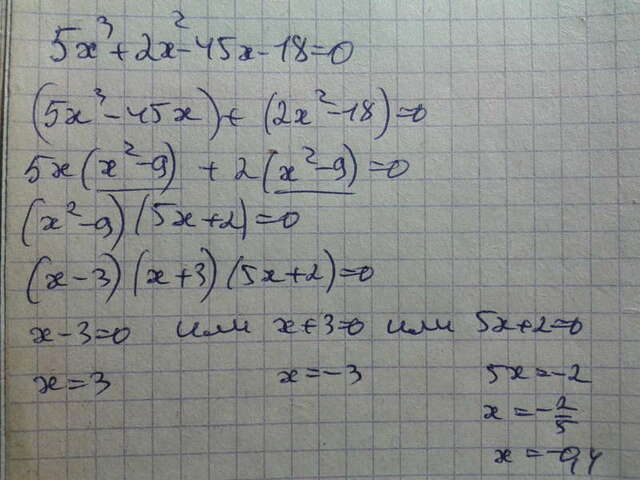 5x³+2x²-45x-18=0
(5x³-45x)+(2x²-18)=0
5x(x²-9)+2(x²-9)=0
(x²-9)(5x+2)=0
(x-3)(x+3)(5x+2)=0
x-3=0 или x+3=0 или 5x+2=0
x=3 x=-3 5x=-2
x=-2/5
x=-0,4